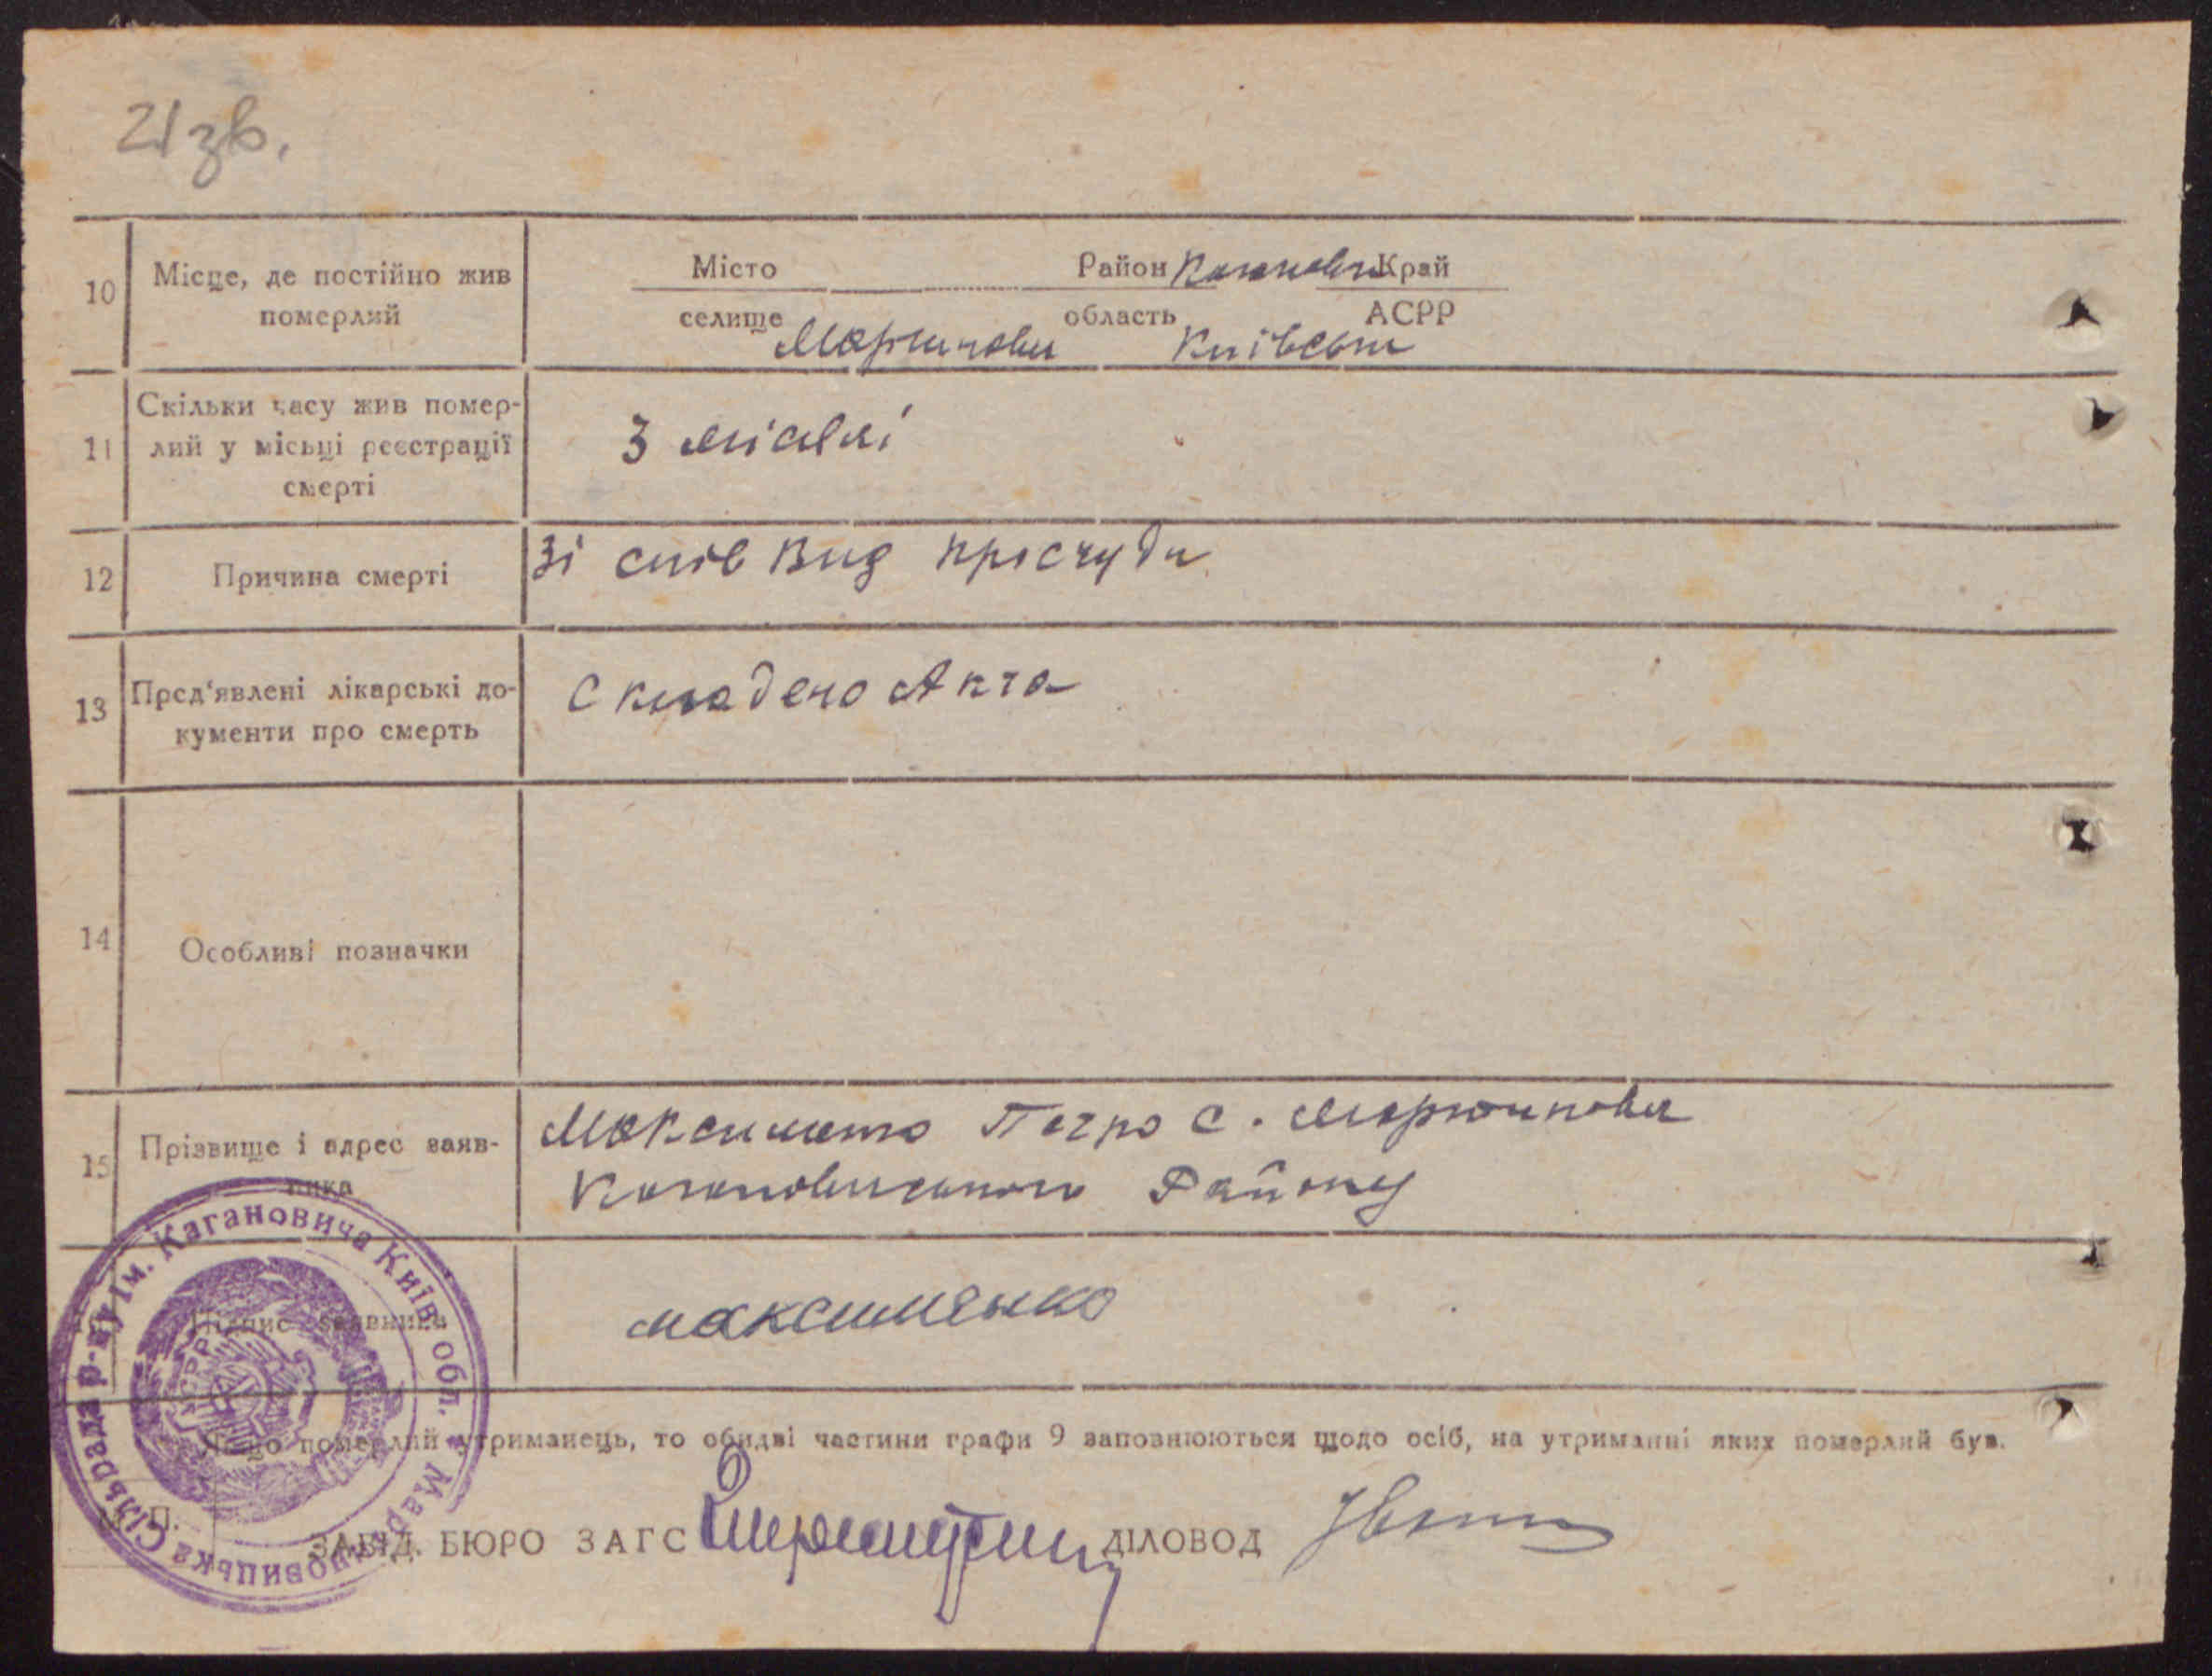 21 зв.
10 Місце, де постійно жив померлий
Місто Район Каганович Край
селище Мартинови область Київська АСРР
11 Скільки часу жив померлий у місьці реєстрації смерті
3 місяці
12 Причина смерті
Зі слів Вид прісчуди
13 Пред'явлені лікарські документи про смерть
Складено Акта
14 Особливі позначки
15 Прізвище і адрес заявника
Максименко Петро с. Мартинови
Кагановичського Району
Підпис заявника
максименко
Якщо померлий утриманець, то обидві частини графи 9 заповнюються щодо осіб, на утриманні яких померлий був.
М. П.
ЗАВІД. БЮРО ЗАГС ДІЛОВОД
Сільрада р-ну ім. Кагановича Київ. обл.
УСРР